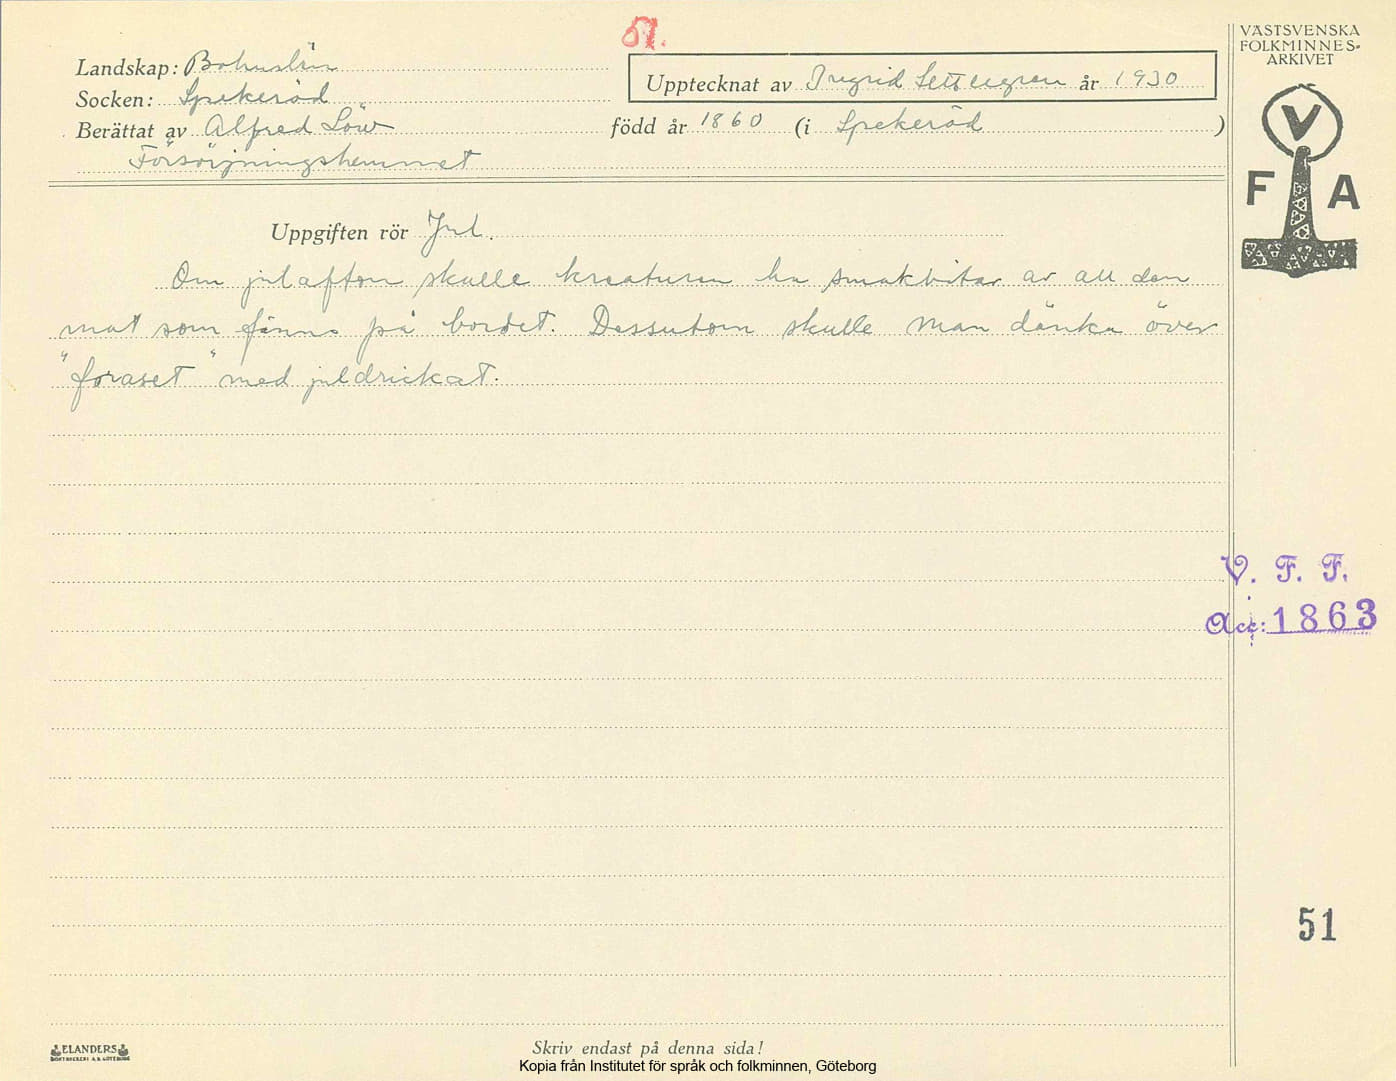 51.
VÄSTSVENSKA
FOLKMINNES-
ARKIVET
V
F A
Landskap: Bohuslän
Upptecknat av Ingrid Settergren år 1930
Socken: Spekeröd
Berättat av Alfred Löw född år 1860 (i Spekeröd )
Försörjningshemmet
Uppgiften rör Jul.
Om julafton skulle kreaturen ha smakbitar av all den
mat som fanns på bordet. Dessutom skulle man dänka över
"foraset" med juldrickat.
V. F. F.
Acc: 1863
51
ELANDERS
BOKTRYCKERI A.B. GÖTEBORG
Skriv endast på denna sida!
Kopia från Institutet för språk och folkminnen, Göteborg